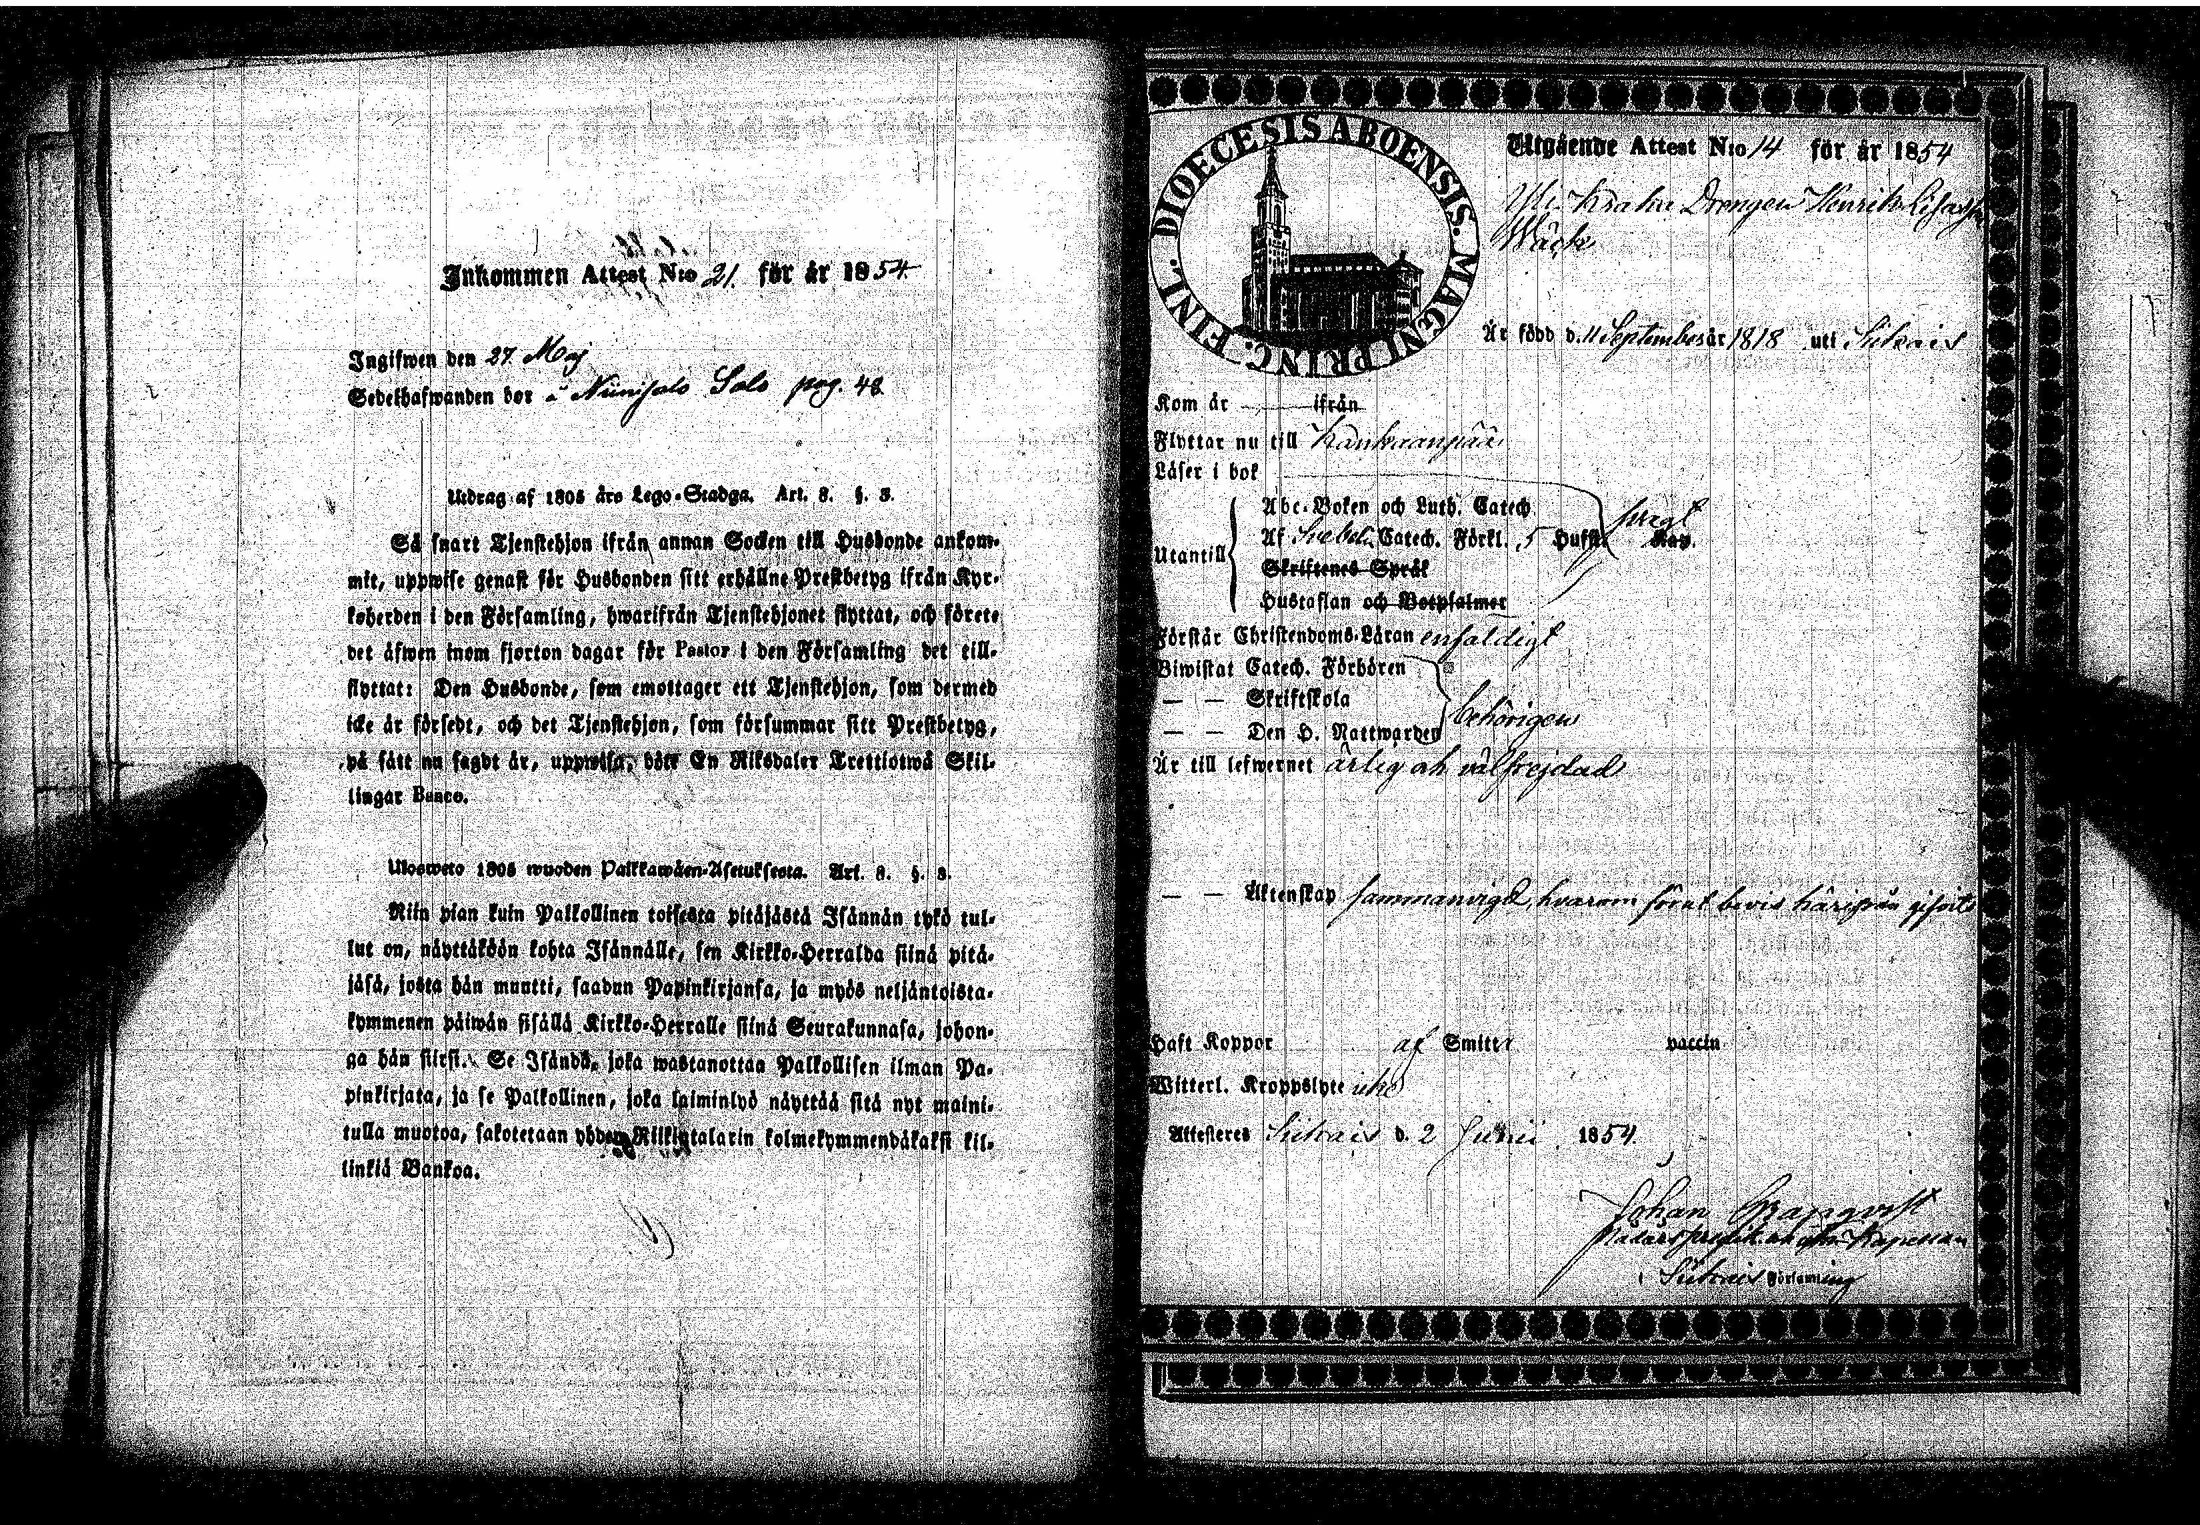 Inkommen Attest N:ro 21. för år 1854
Ingifwen den 27 Maj
Sedelhafwanden bor å Niinisalo Salo pag. 48
Utdrag af 1805 års Lego-Stadga. Art. 8. §. 3.
Så snart Tjenstehjon ifrån annan Socken till Husbonde ankom-
mit, uppwise genast för Husbonden sitt erhållne Prestbetyg ifrån Kyr-
koherden i den Församling, hwarifrån Tjenstehjonet flyttat, och förete
det äfwen inom fjorton dagar för Pastor i den Församling det till-
flyttat: Den Husbonde, som emottager ett Tjenstehjon, som dermed
icke är försedt, och det Tjenstehjon, som försummar sitt Prestbetyg,
på sätt nu sagdt är, uppwisa, böte En Riksdaler Trettiotwå Skil-
lingar Banco.
Ulosweto 1805 wuoden Palkkawäen-Asetuksesta. Art. 8. §. 3.
Niin pian kuin Palkollinen toisesta pitäjästä Isännän tykö tul-
lut on, näyttäköön kohta Isännälle, sen Kirkko-Herralda siinä pitä-
jäsä, josta hän muutti, saadun Papinkirjansa, ja myös neljäntoista-
kymmenen päiwän sisällä Kirkko-Herralle siinä Seurakunnasa, johon-
ga hän siirsi. Se Isändä, joka wastanottaa Palkollisen ilman Pa-
pinkirjata, ja se Palkollinen, joka laiminlyö näyttää sitä nyt maini-
tulla muotoa, sakotetaan yhden Riikintalarin kolmekymmendäkaksi kil-
linkiä Bankoa.
DIOECESIS ABOENSIS. MAGNI PRINC. FINL.
Utgående Attest N:ro 14 för år 1854
Drengen Henrik
Wäck
Är född d. 11 September år 1818 uti Siikais
Kom år ifrån
Flyttar nu till Kankaanpää
Läser i bok
Abc-Boken och Luth. Catech.
Utantill Af Svebel. Catech. Förkl. 5 Hufst. svagt Kap.
Skriftenes Språk
Hustaflan och Botpsalmer
Förstår Christendoms-Läran enfaldigt
Biwistat Catech. Förhören
— — Skriftskola
— — Den H. Nattwarden behörigen
Är till lefwernet ärlig och välfrejdad
— — Äktenskap sammanvigd, hvarom förut bevis härifrån gifvits
Haft Koppor af Smitta vaccin
Witterl. Kroppslyte icke
Attesteres Siikais d. 2 Junii 1854.
Johan
Kapellan
i Siikais Församling